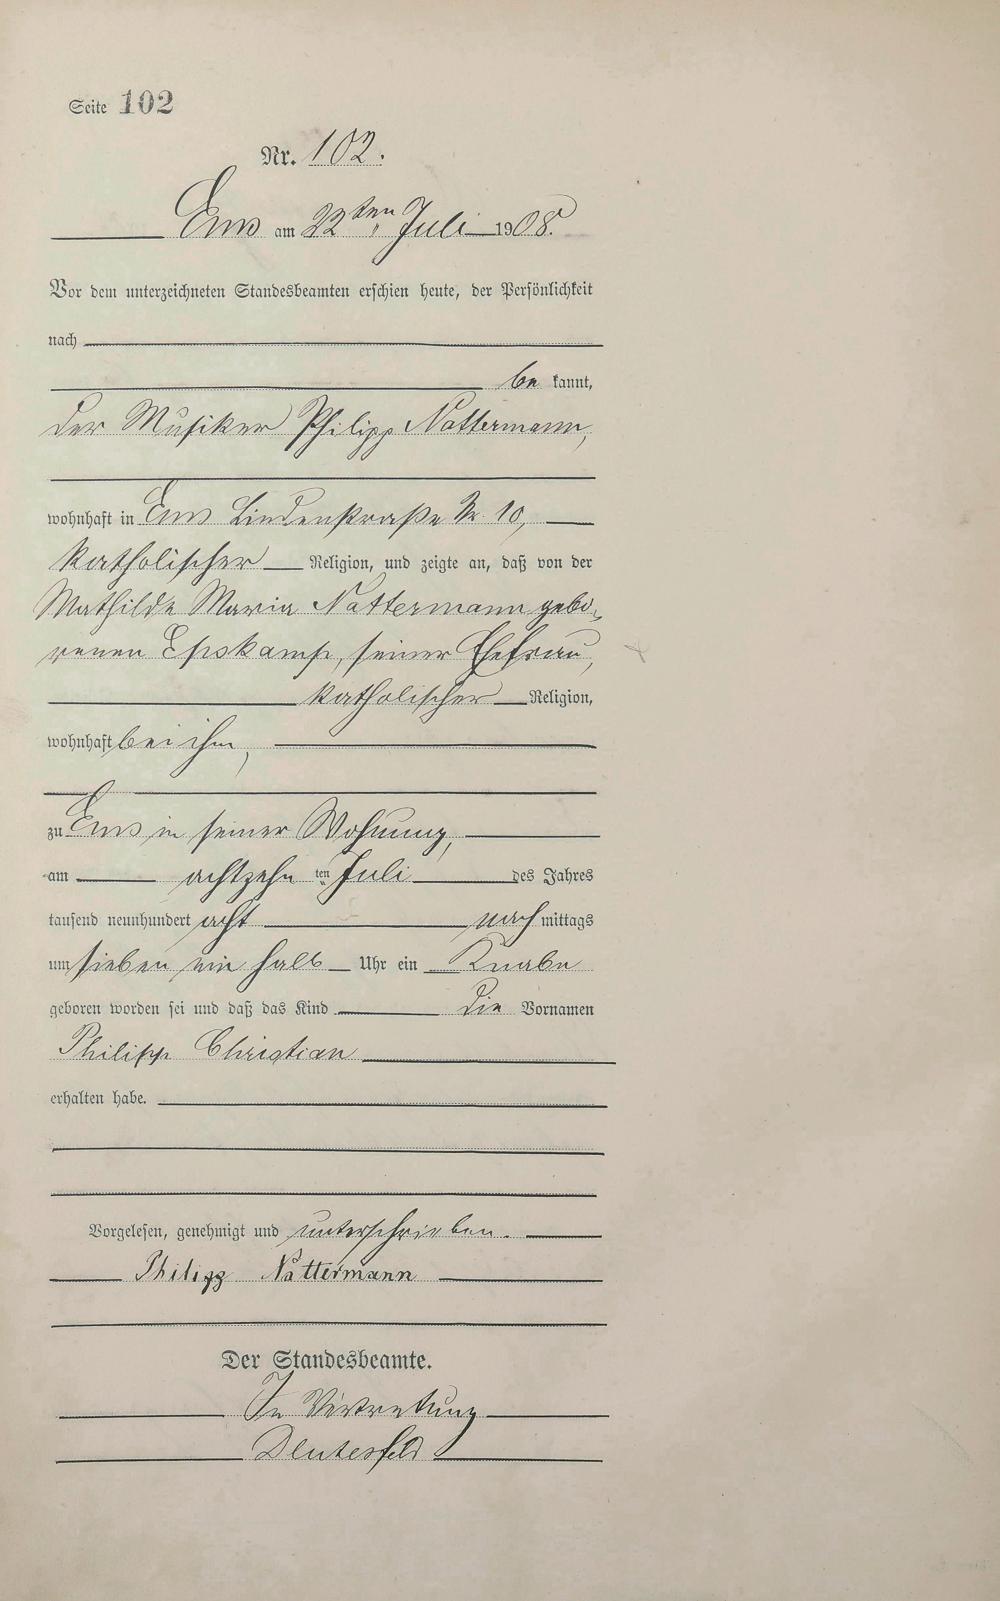 Seite 102
Nr. 102.
Ems am 22ten Juli 1908.
Vor dem unterzeichneten Standesbeamten erschien heute, der Persönlichkeit
nach
be kannt,
der Musiker Philipp Nattermann,
wohnhaft in Ems Lindenstraße Nr 10,
katholischer Religion, und zeigte an, daß von der
Mathilde Maria Nattermann gebo-
renen Epskamp, seiner Ehefrau,
katholischer Religion,
wohnhaft bei ihm,
zu Ems in seiner Wohnung,
am achtzehn ten Juli des Jahres
tausend neunhundert acht nach mittags
um sieben ein halb Uhr ein Knabe
geboren worden sei und daß das Kind die Vornamen
Philipp Christian
erhalten habe.
Vorgelesen, genehmigt und unterschrieben.
Philipp Nattermann
Der Standesbeamte.
In Vertretung